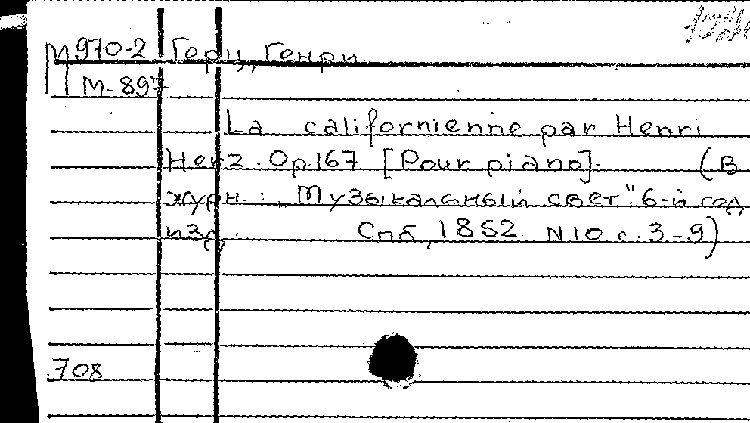 М970-2 Герц, Генри
М-897
La californienne par Henri
Herz. Op.167 [Pour piano]. (В
журн.: „Музыкальный свет" 6-й год
изд. Спб, 1852 N10 с. 3-9)
708